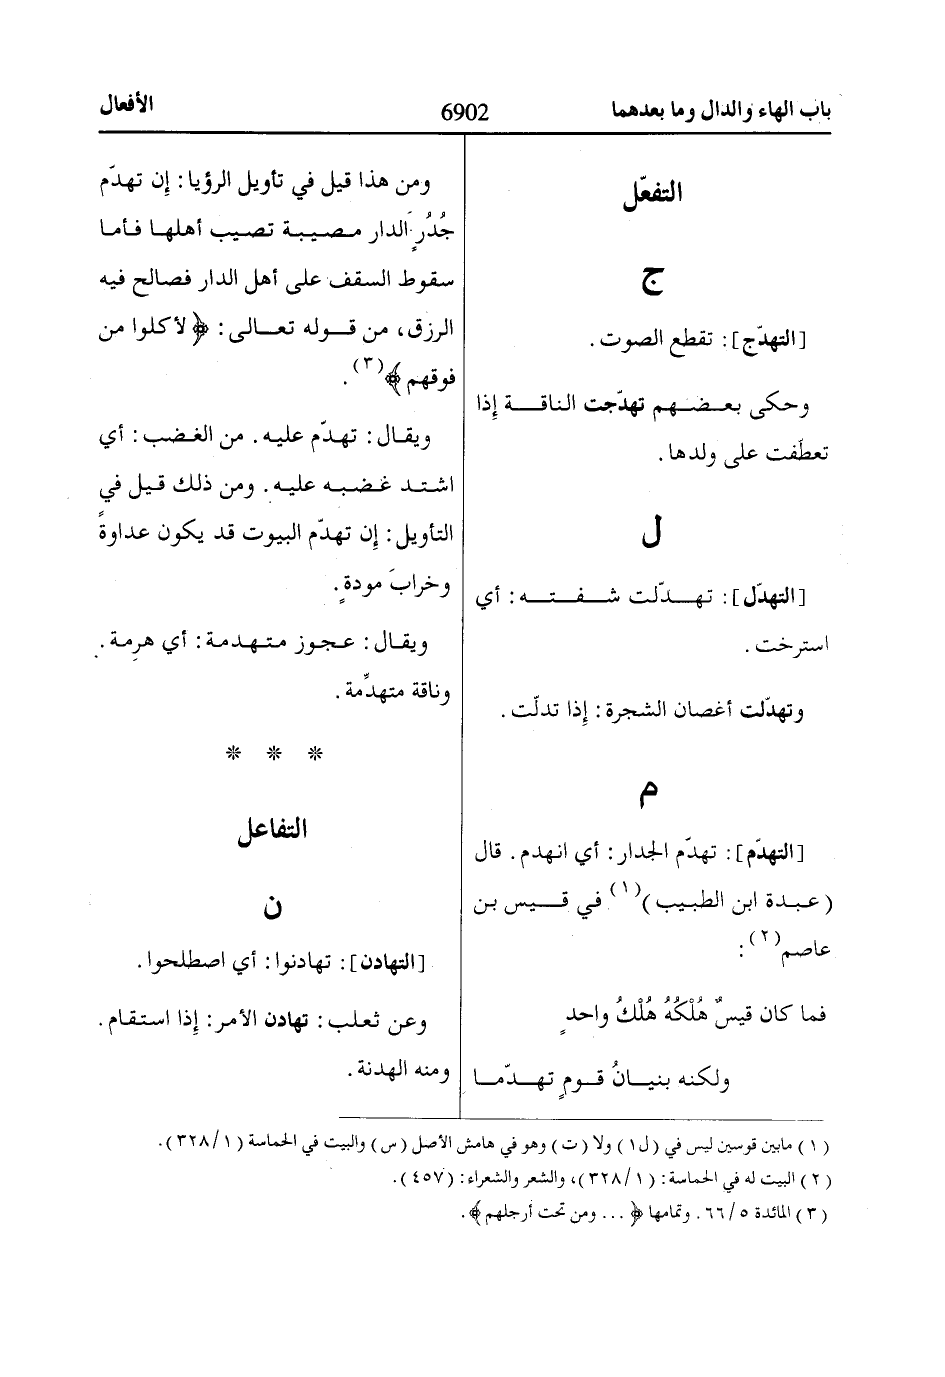 باب الهاء والدال وما بعدهما
6902
الأفعال
التفعّل
ج
[التهدّج]: تقطع الصوت.
وحكى بعضهم تهدّجت الناقة إذا
تعطّفت على ولدها.
ل
[التهدّل]: تهدّلت شفته: أي
استرخت.
وتهدّلت أغصان الشجرة: إذا تدلّت.
م
[التهدّم]: تهدّم الجدار: أي انهدم. قال
(عبدة ابن الطبيب)(١) في قيس بن
عاصم(٢):
فما كان قيسٌ هُلْكُهُ هُلْكُ واحدٍ
ولكنه بنيانُ قومٍ تهدّما
ومن هذا قيل في تأويل الرؤيا: إن تهدّم
جُدُرِ الدار مصيبة تصيب أهلها فأما
سقوط السقف على أهل الدار فصالح فيه
الرزق، من قوله تعالى: ﴿لأكلوا من
فوقهم﴾(٣).
ويقال: تهدّم عليه. من الغضب: أي
اشتد غضبه عليه. ومن ذلك قيل في
التأويل: إن تهدّم البيوت قد يكون عداوةً
وخرابَ مودةٍ.
ويقال: عجوز متهدمة: أي هرِمة.
وناقة متهدِّمة.
* * *
التفاعل
ن
[التهادن]: تهادنوا: أي اصطلحوا.
وعن ثعلب: تهادن الأمر: إذا استقام.
ومنه الهدنة.
(١) مابين قوسين ليس في (ل١) ولا (ت) وهو في هامش الأصل (س) والبيت في الحماسة (١/٣٢٨).
(٢) البيت له في الحماسة: (١/٣٢٨)، والشعر والشعراء: (٤٥٧).
(٣) المائدة ٥/٦٦. وتمامها ﴿... ومن تحت أرجلهم﴾.